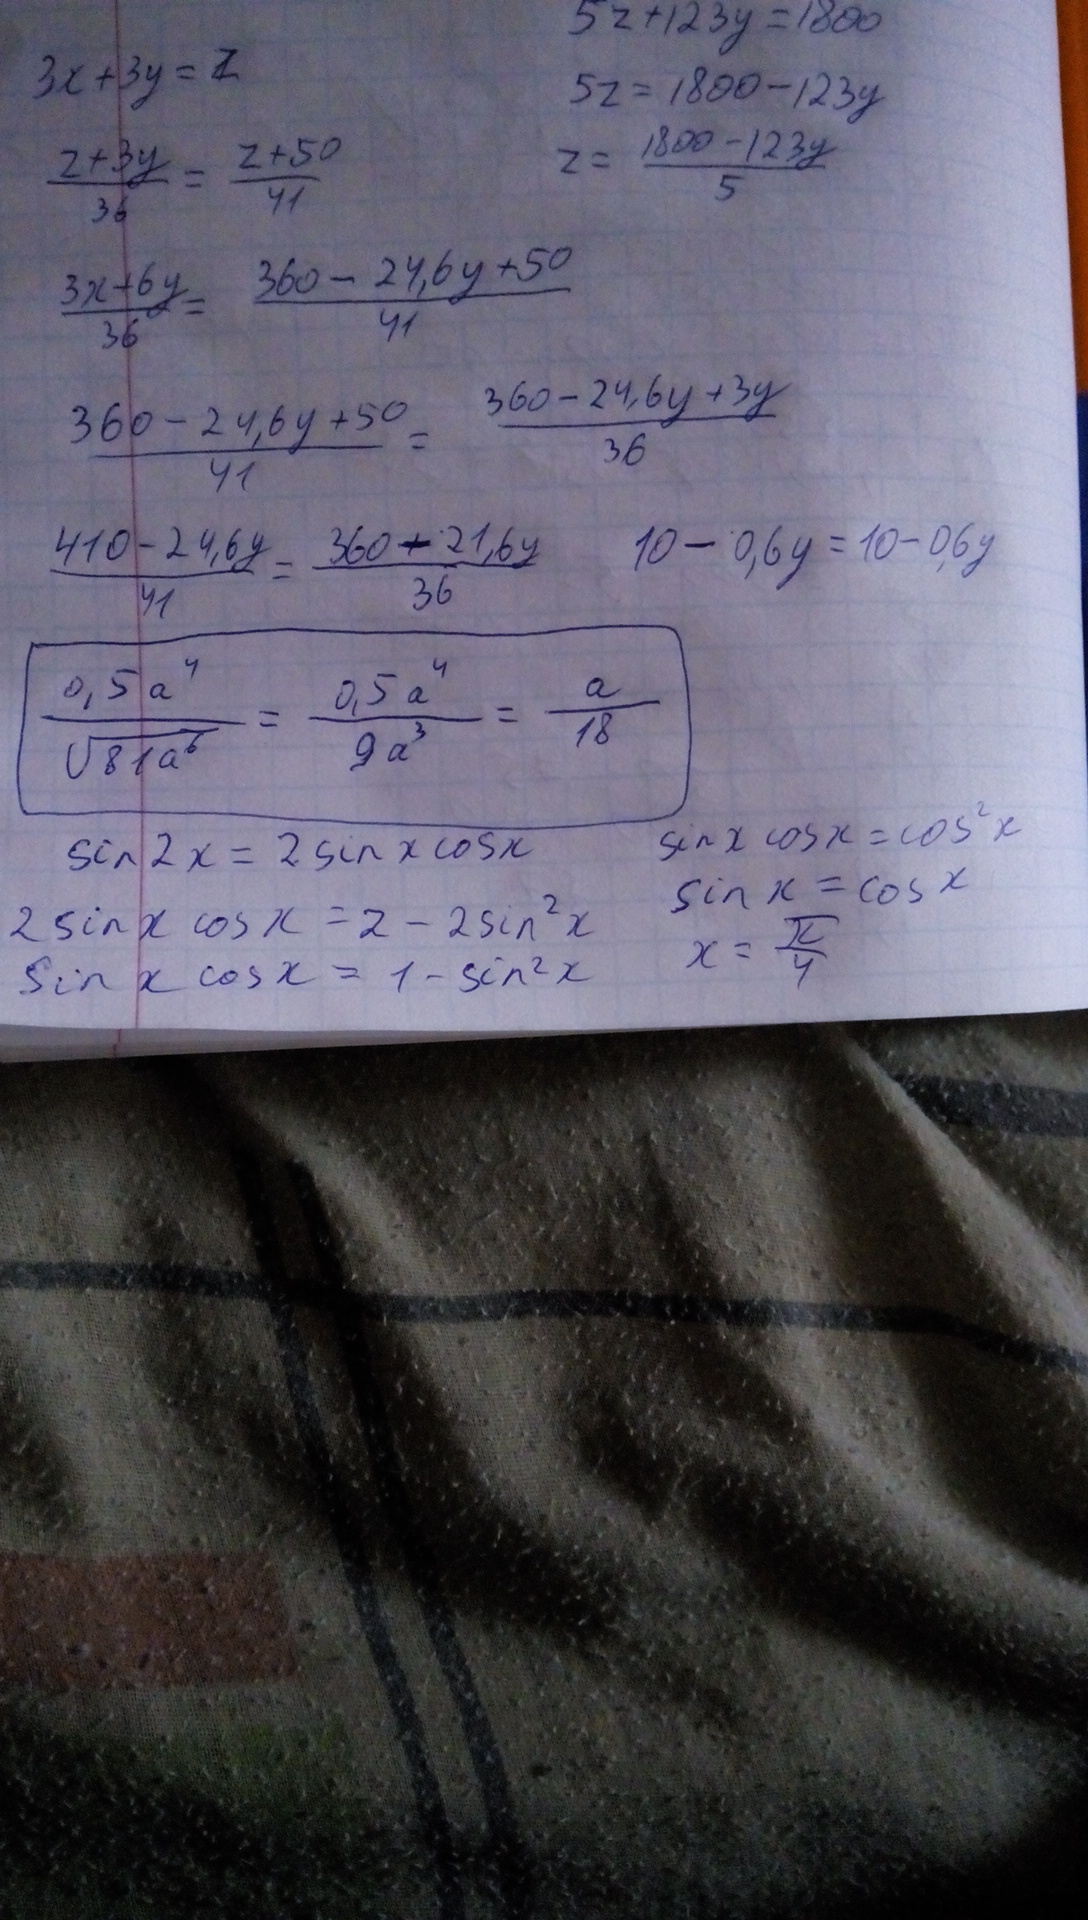 5z+123y=1800
3x+3y=z
5z=1800-123y
(z+3y)/36 = (z+50)/41
z= (1800-123y)/5
(3x+6y)/36 = (360-24,6y+50)/41
(360-24,6y+50)/41 = (360-24,6y+3y)/36
(410-24,6y)/41 = (360-21,6y)/36
10-0,6y=10-0,6y
0,5a⁴/√81a⁶ = 0,5a⁴/9a³ = a/18
sin2x=2sinxcosx
sinxcosx=cos²x
sinx=cosx
2sinxcosx=2-2sin²x
x=π/4
sinxcosx=1-sin²x